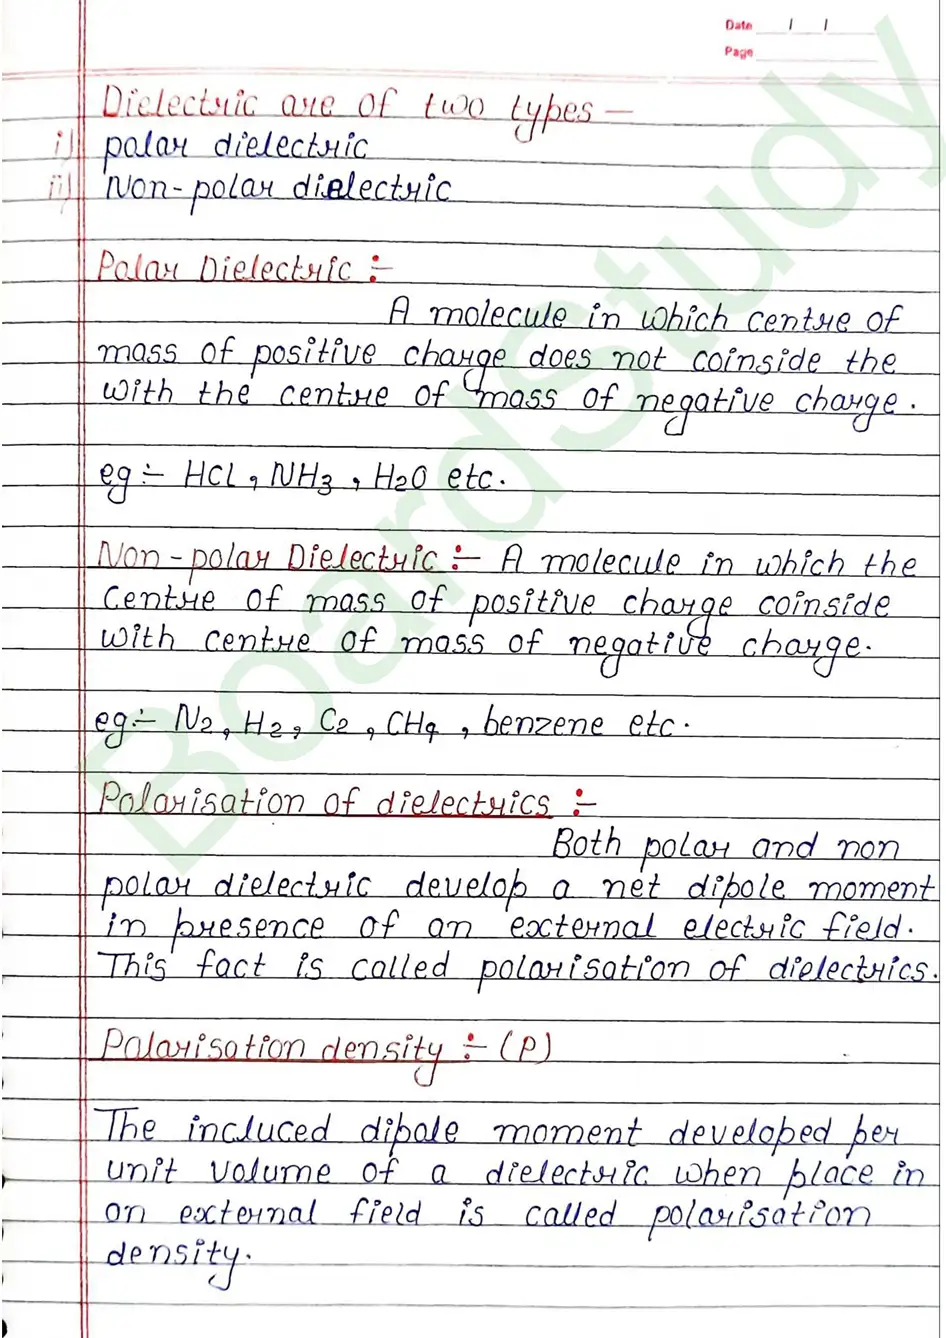 Date / /
Page
Dielectric are of two types –
i) polar dielectric
ii) Non-polar dielectric
Polar Dielectric :-
A molecule in which centre of
mass of positive charge does not coinside the
with the centre of mass of negative charge.
eg :- HCL, NH3, H2O etc.
Non-polar Dielectric :- A molecule in which the
Centre of mass of positive charge coinside
with centre of mass of negative charge.
eg :- N2, H2, C2, CH4, benzene etc.
Polarisation of dielectrics :-
Both polar and non
polar dielectric develop a net dipole moment
in presence of an external electric field.
This fact is called polarisation of dielectrics.
Polarisation density :- (P)
The incluced dipole moment developed per
unit volume of a dielectric when place in
an external field is called polarisation
density.
BoardStudy